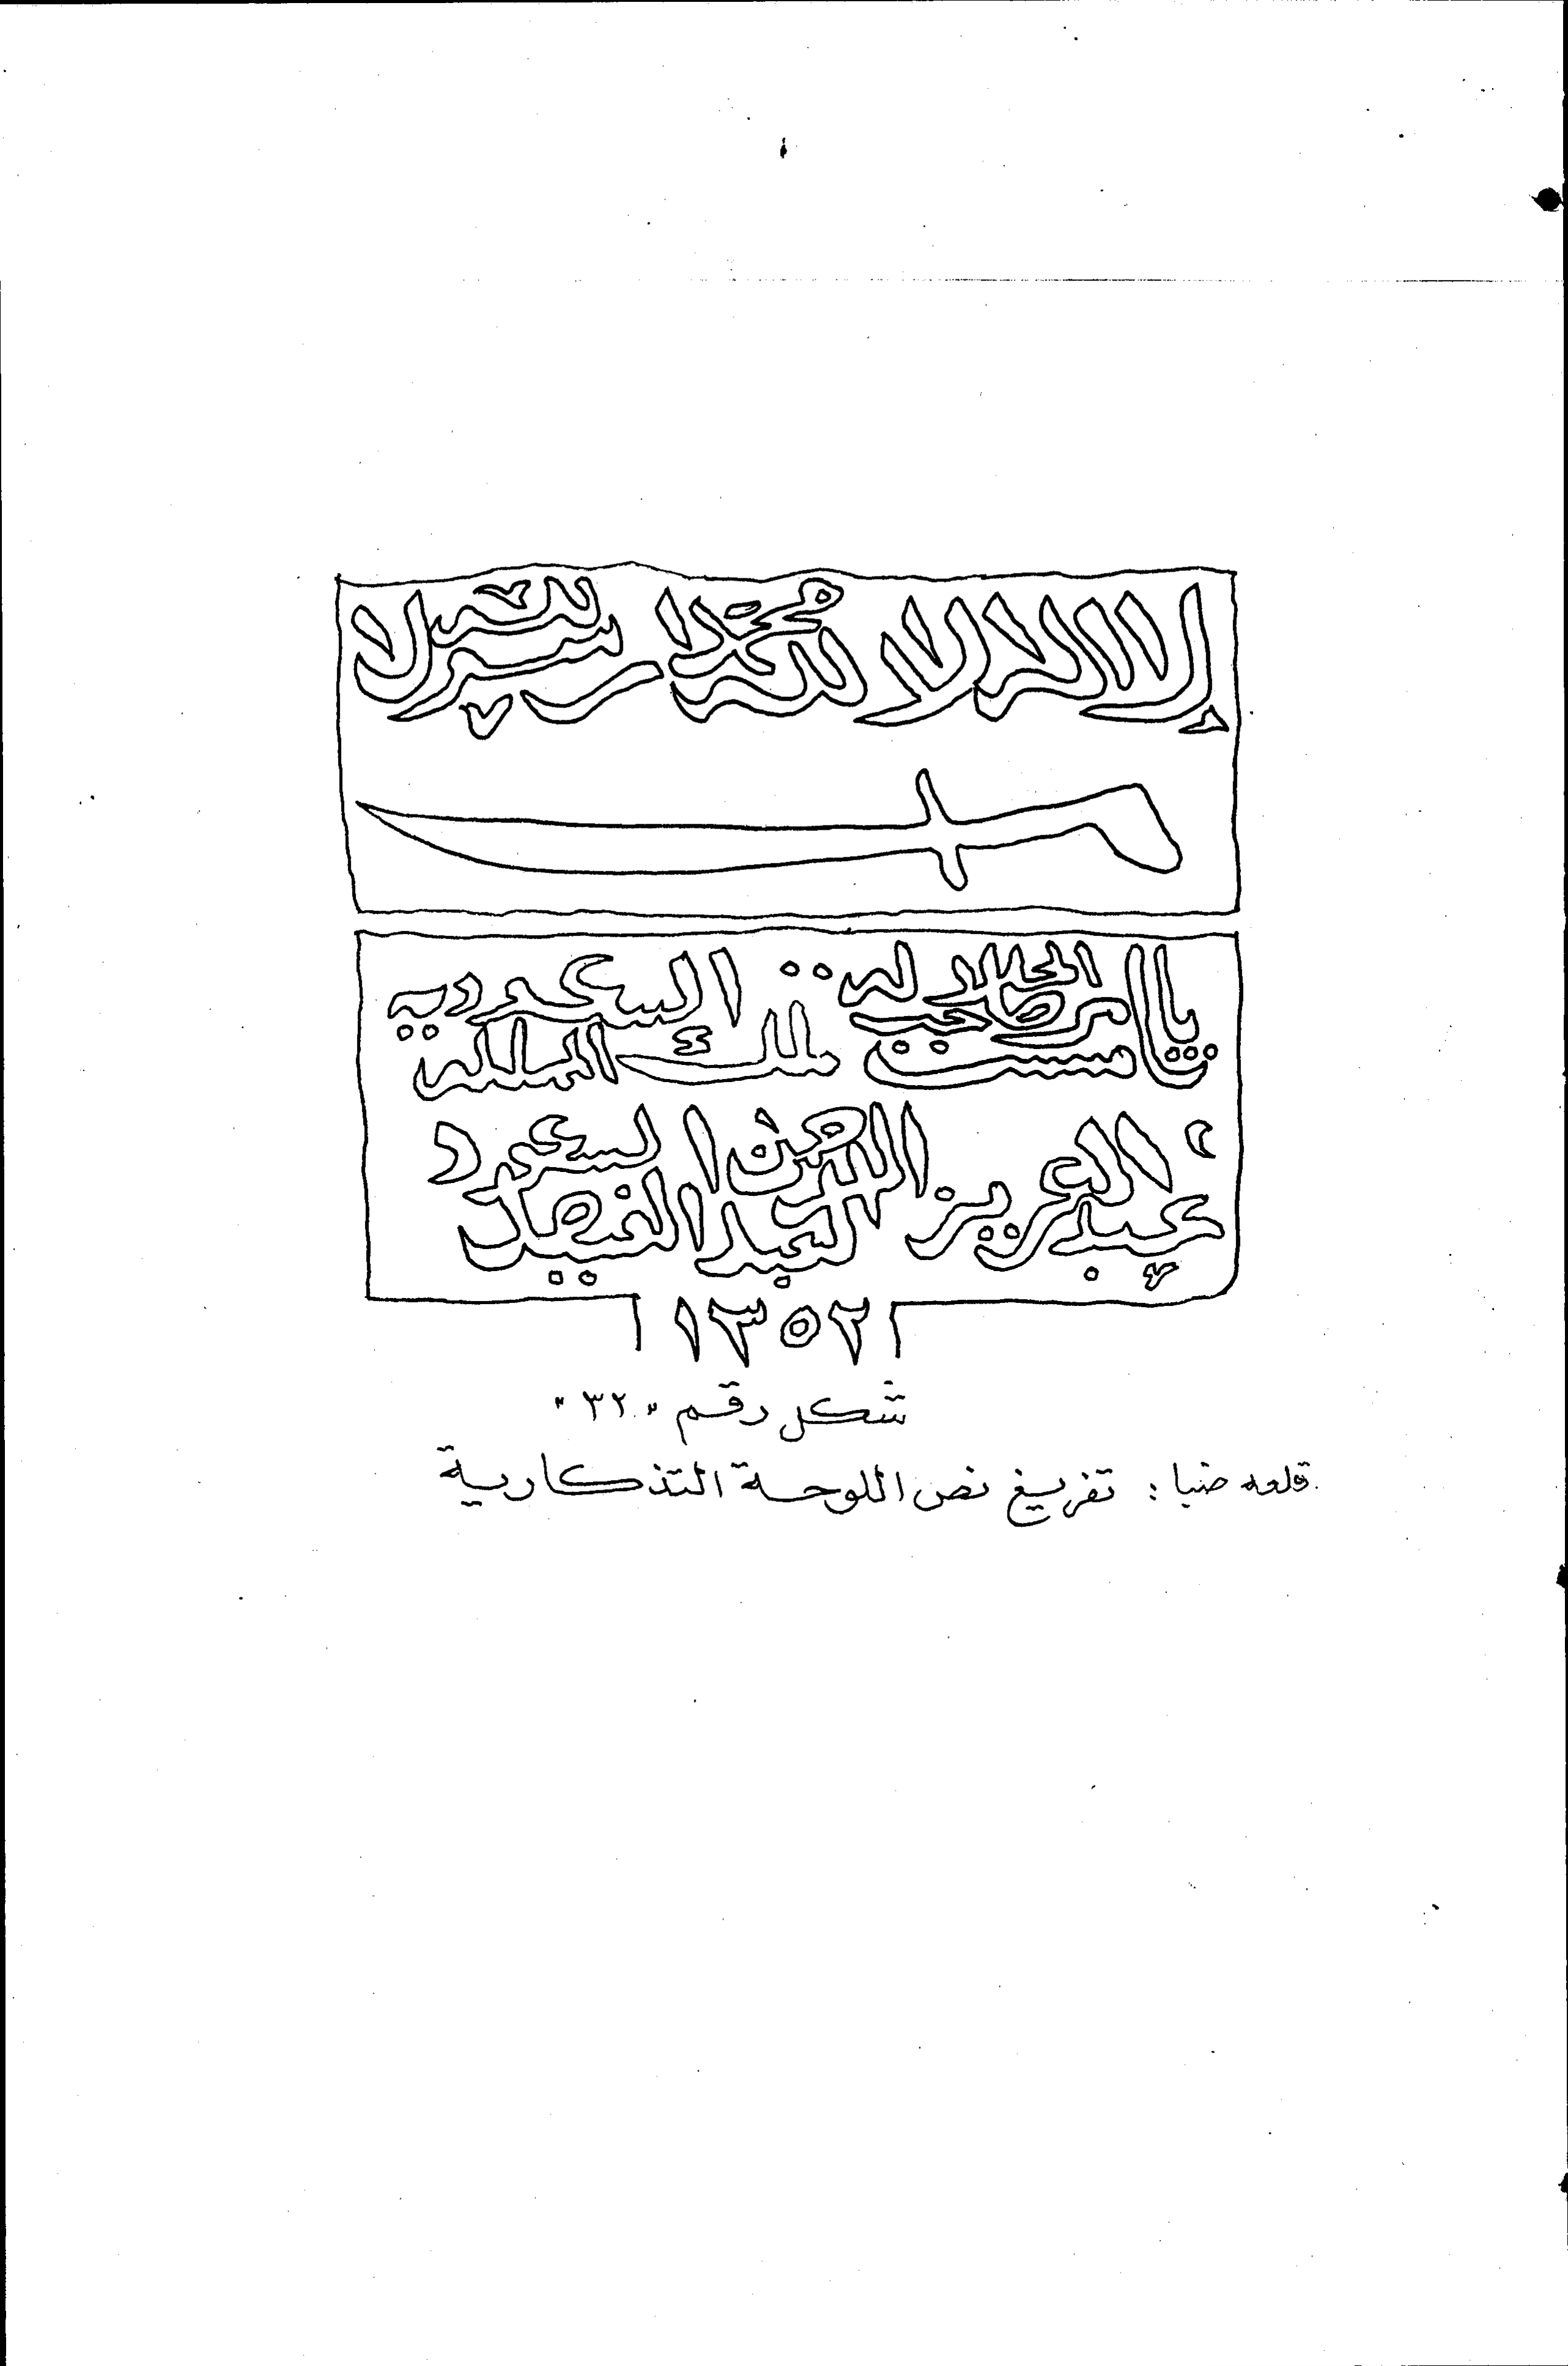 لا إله إلا الله محمد رسول الله
بأمر صاحب الجلالة ملك المملكة السعودية
عبد العزيز عبد الرحمن الفيصل السعود
١٣٥٢
شكل رقم "٣٢"
قلعه ضبا : تفريغ نص اللوحة التذكارية